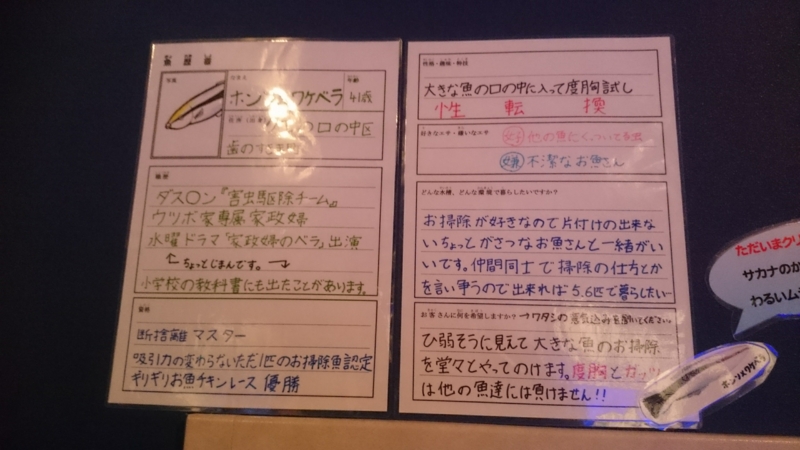 魚歴書
写真
年齢
ホンソメワケベラ
41歳
の口の中区
歯のすきま
職歴
ダス〇ン『害虫駆除チーム』
ウツボ家専属家政婦
水曜ドラマ「家政婦のベラ」出演
ちょっとじまんです。
小学校の教科書にも出たことがあります。
資格
断捨離マスター
吸引力の変わらないただ1匹のお掃除魚認定
ギリギリお魚チキンレース 優勝
性格・趣味・特技
大きな魚の口の中に入って度胸試し
性転換
好きなエサ・嫌いなエサ
好 他の魚についてる
嫌 不潔なお魚さん
どんな水槽、どんな環境で暮らしたいですか？
お掃除が好きなので片付けの出来な
いちょっとがさつなお魚さんと一緒がい
いです。仲間同士で掃除の仕方とか
を言い争うので出来れば5.6匹で暮らしたい
お客さんに何を希望しますか？→ワタシの意気込みを聞いてください。
ひ弱そうに見えて大きな魚のお掃除
を堂々とやってのけます。度胸とガッツ
は他の魚達には負けません!!
ただいまクリ
サカナのか
わるいム
ホンソメワケベラ